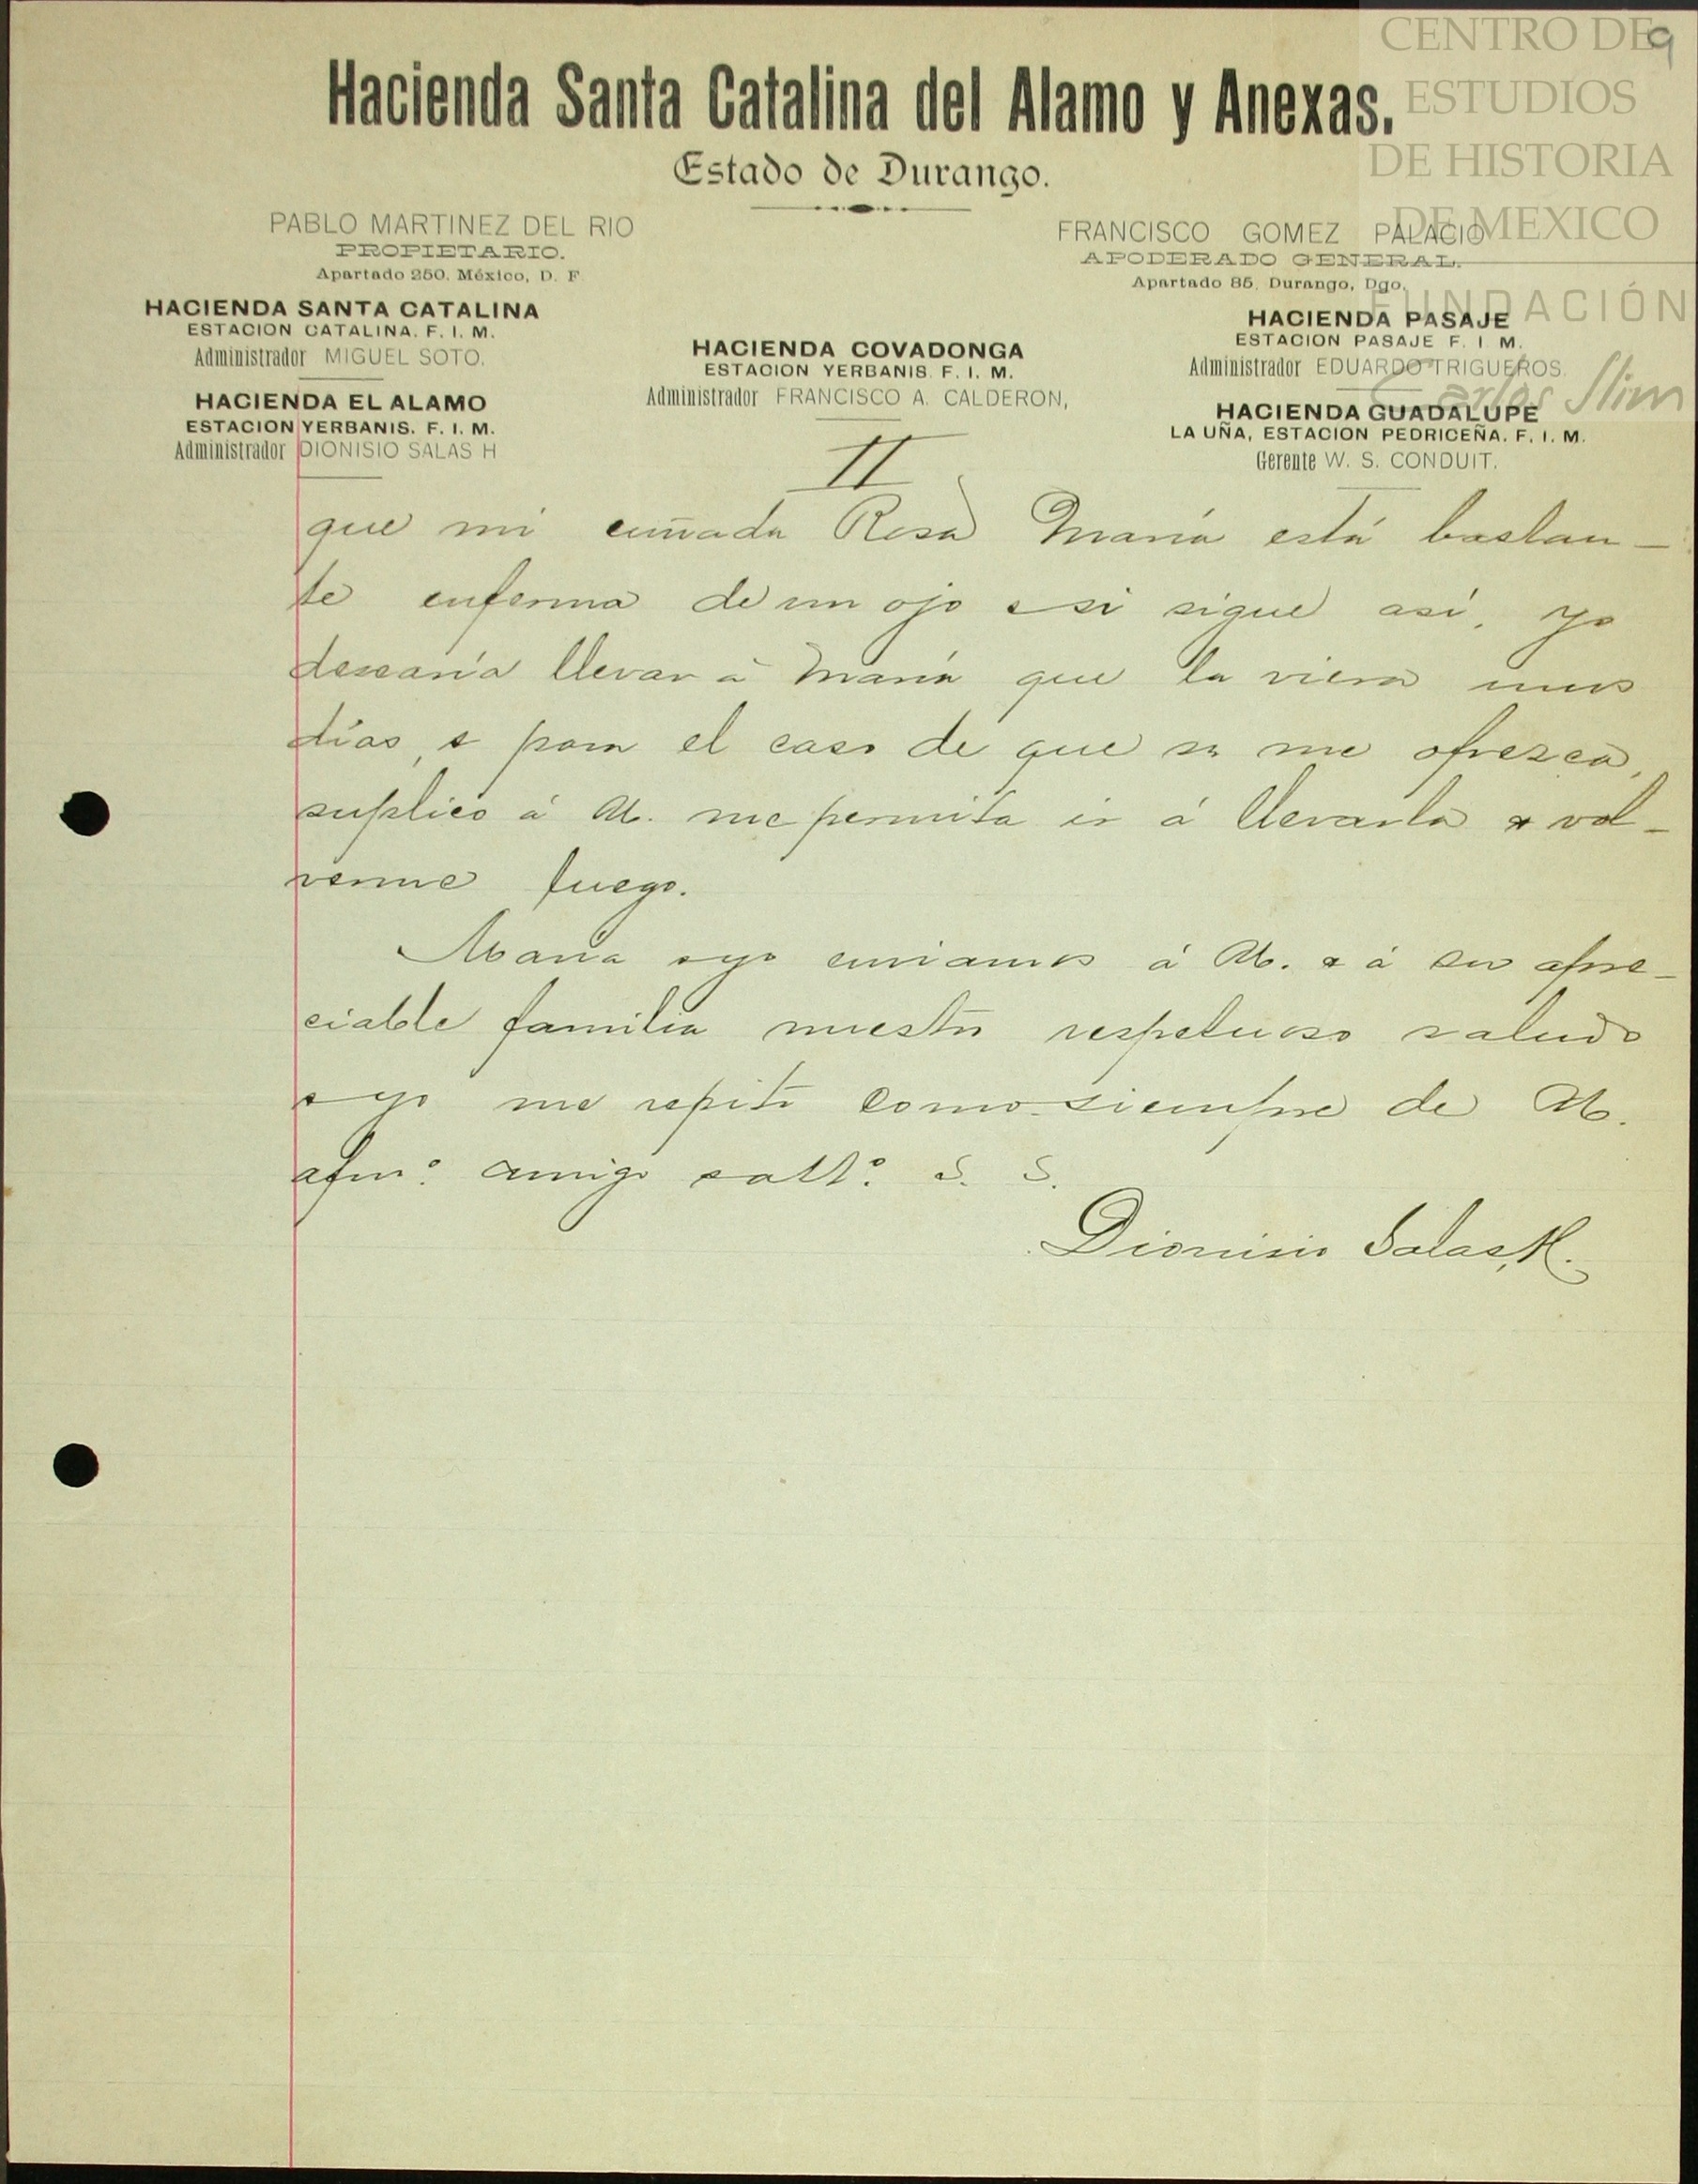 9
CENTRO DE
ESTUDIOS
DE HISTORIA
DE MEXICO
FUNDACIÓN
Carlos Slim
Hacienda Santa Catalina del Alamo y Anexas.
Estado de Durango.
PABLO MARTINEZ DEL RIO
PROPIETARIO.
Apartado 250. México, D. F.
FRANCISCO GOMEZ PALACIO
APODERADO GENERAL.
Apartado 85. Durango, Dgo.
HACIENDA SANTA CATALINA
ESTACION CATALINA. F. I. M.
Administrador MIGUEL SOTO.
HACIENDA EL ALAMO
ESTACION YERBANIS. F. I. M.
Administrador DIONISIO SALAS H
HACIENDA COVADONGA
ESTACION YERBANIS. F. I. M.
Administrador FRANCISCO A. CALDERON,
HACIENDA PASAJE
ESTACION PASAJE F. I M.
Administrador EDUARDO TRIGUEROS.
HACIENDA GUADALUPE
LA UÑA, ESTACION PEDRICEÑA. F. I. M.
Gerente W. S. CONDUIT.
II
que mi cuñada Rosa María está bastan-
te enferma de un ojo y si sigue así, yo
desearía llevar á María que la viera unos
días, y para el caso de que se me ofrezca,
suplico á Ud. me permita ir á llevarla y vol-
verme luego.
María y yo enviamos á Ud. y á su apre-
ciable familia nuestro respetuoso saludo
y yo me repito como siempre de Ud.
afmo. amigo S. S.
Dionisio Salas H.